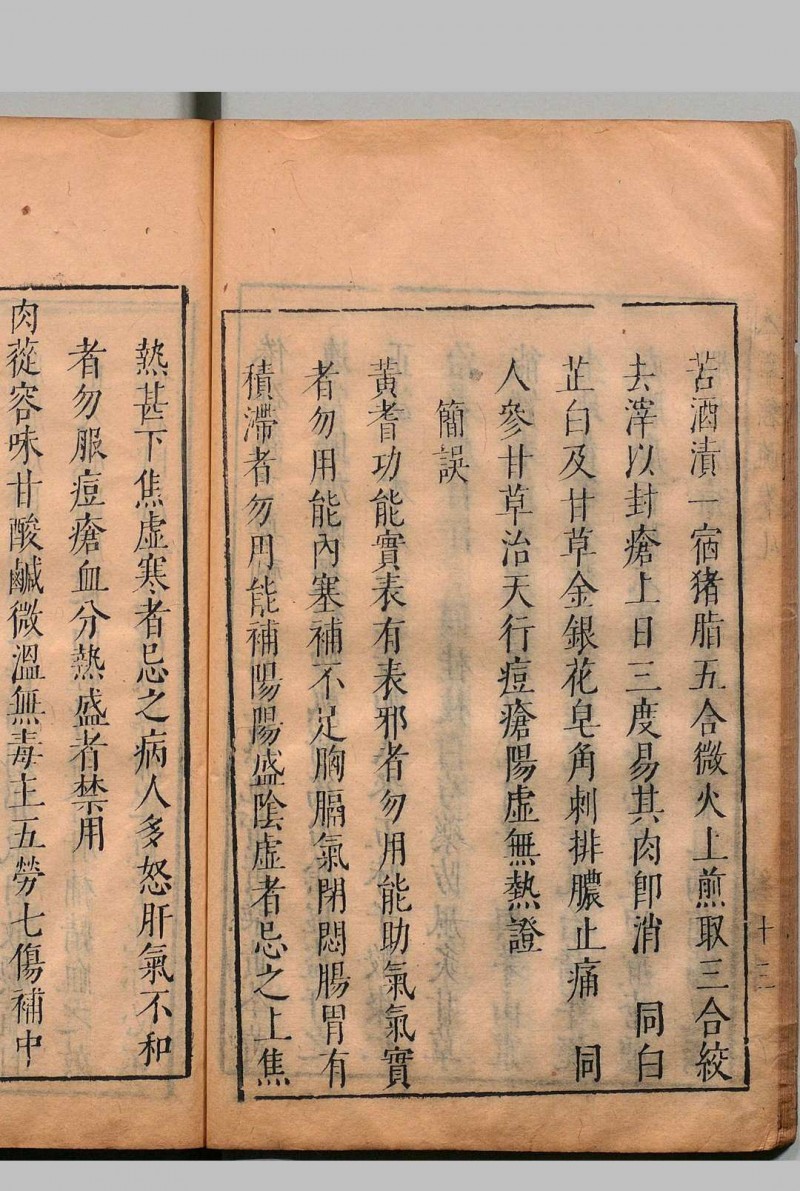 苦酒漬一宿猪脂五合微火上煎取三合絞
去滓以封瘡上日三度易其肉卽消　同白
芷白及甘草金銀花皂角刺排膿止痛　同
人參甘草治天行痘瘡陽虛無熱證
簡誤
黃耆功能實表有表邪者勿用能助氣氣實
者勿用能內塞補不足胸膈氣閉悶腸胃有
積滯者勿用能補陽陽盛陰虛者忌之上焦
熱甚下焦虛寒者忌之病人多怒肝氣不和
者勿服痘瘡血分熱盛者禁用
肉蓯容味甘酸鹹微溫無毒主五勞七傷補中